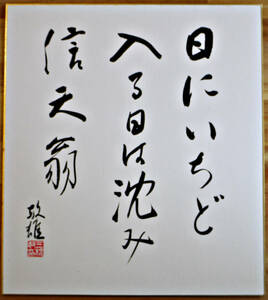 日にいちど
入る日は沈み
信天翁
敏雄